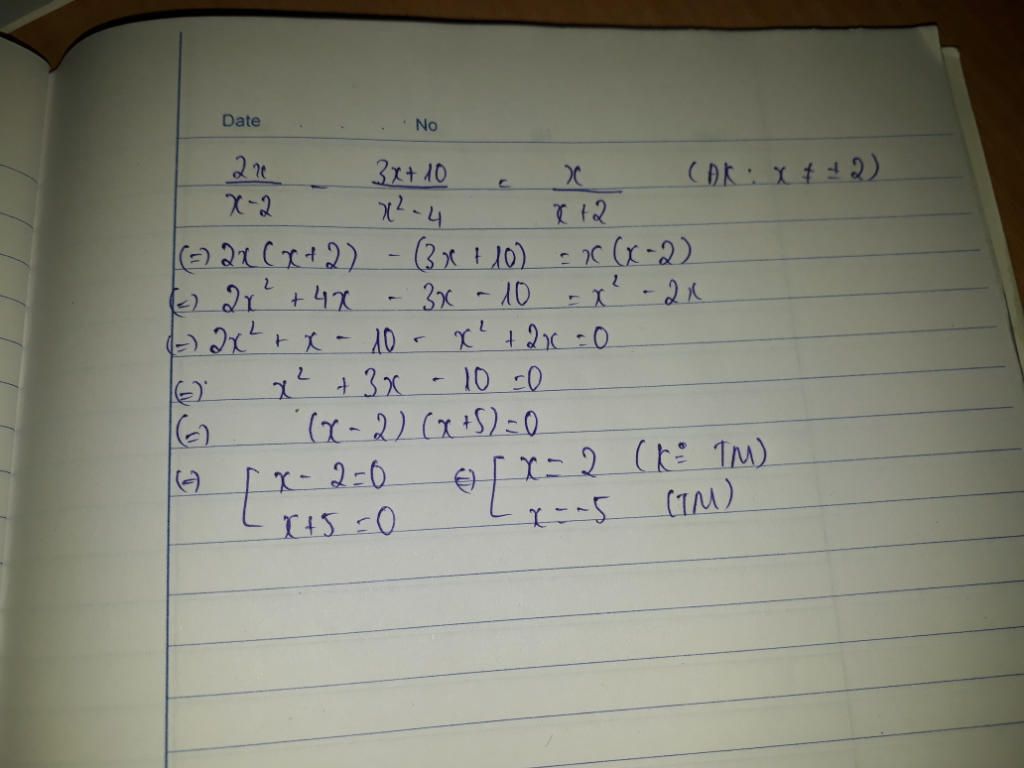 Date . . . . No
2x/(x-2) - (3x+10)/(x²-4) = x/(x+2) (ĐK: x ≠ ±2)
(=) 2x(x+2) - (3x+10) = x(x-2)
(=) 2x² + 4x - 3x - 10 = x² - 2x
(=) 2x² + x - 10 - x² + 2x = 0
(=) x² + 3x - 10 = 0
(=) (x-2)(x+5)=0
(=) [ x-2=0 (=) [ x=2 (K° TM)
x+5=0 x=-5 (TM)